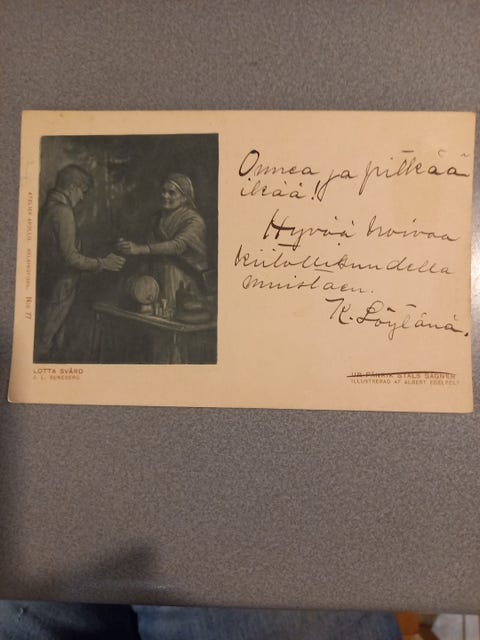 Onnea ja pitkää
ikää!
Hyvää hoivaa
kiitollisuudella
muistaen.
K. Löytänä.
LOTTA SVÄRD
J. L. RUNEBERG
UR FÄNRIK STÅLS SÄGNER
ILLUSTRERAD AF ALBERT EDELFELT
ATELIER APOLLO
No 77